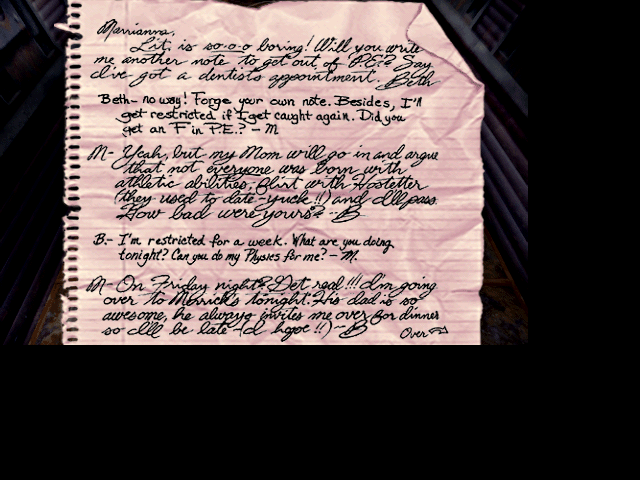 Marrianna,
Lit. is so.o.o boring! Will you write
me another note to get out of P.E.? Say
I've got a dentists appointment. Beth
Beth- no way! Forge your own note. Besides, I'll
get restricted if I get caught again. Did you
get an F in P.E.? - M
M- Yeah, but my Mom will go in and argue
that not everyone was born with
athletic abilities, flirt with Hostetter
(they used to date-yuck!!) and I'll pass.
How bad were yours? -B
B.- I'm restricted for a week. What are you doing
tonight? Can you do my Physics for me? - M.
M- On Friday night? Get real!!! I'm going
over to Merrick's tonight. His dad is so
awesome, he always invites me over for dinner
so I'll be late (I hope!!) -B
Over